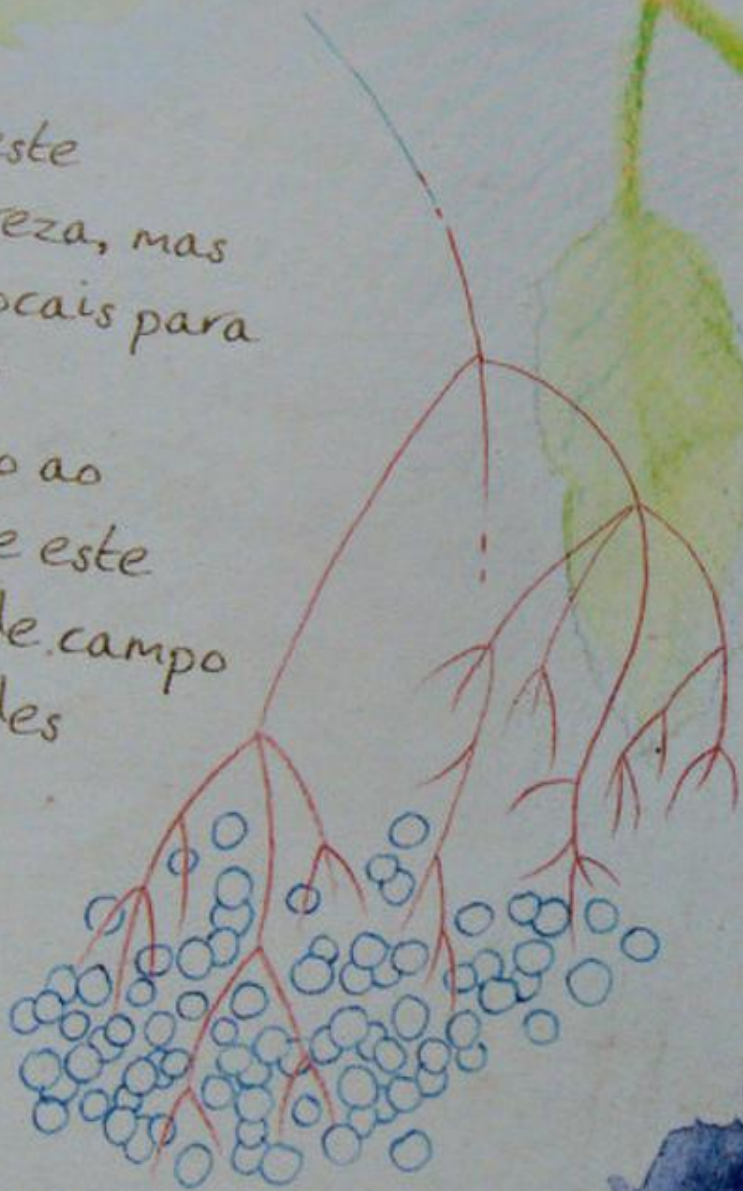 este
eza, mas
ocais para
o ao
e este
de campo
des